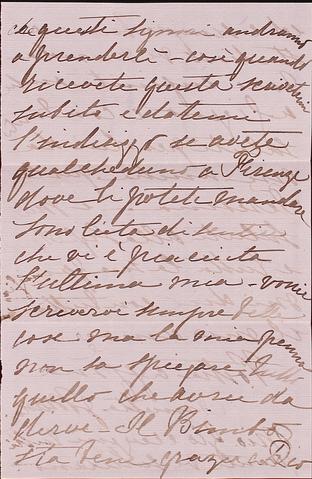 che questi signori andranno
a prenderli - così quando
ricevete questa scrivetemi
subito e datemi
l'indirizzo se avete
qualcheduno a Firenze
dove li potete mandare
Sono lieta di sentire
che vi è piaciuta
l'ultima mia - vorrei
scrivervi sempre belle
cose ma la mia penna
non sa spiegare tutto
quello che avrei da
dirvi - Il Bimbo
sta bene grazie